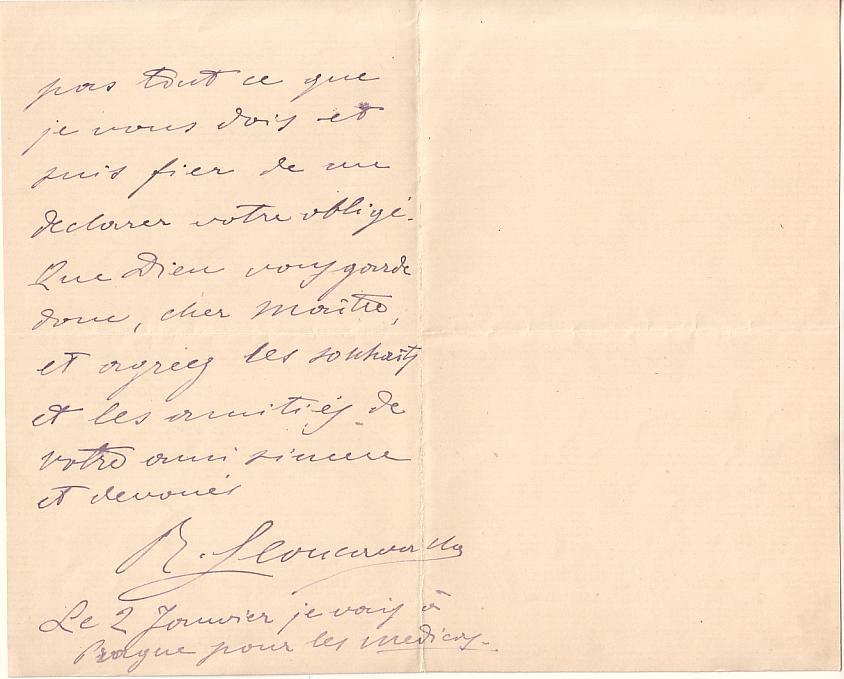 pas tout ce que
je vous dois et
suis fier de me
declarer votre obligé.
Que Dieu vous garde
donc, cher Maître,
et agreez les souhaits
et les amitiés de
votre ami sincere
et devoués
R. Leoncavallo
Le 2 Janvier je vais à
Prague pour les medicis.